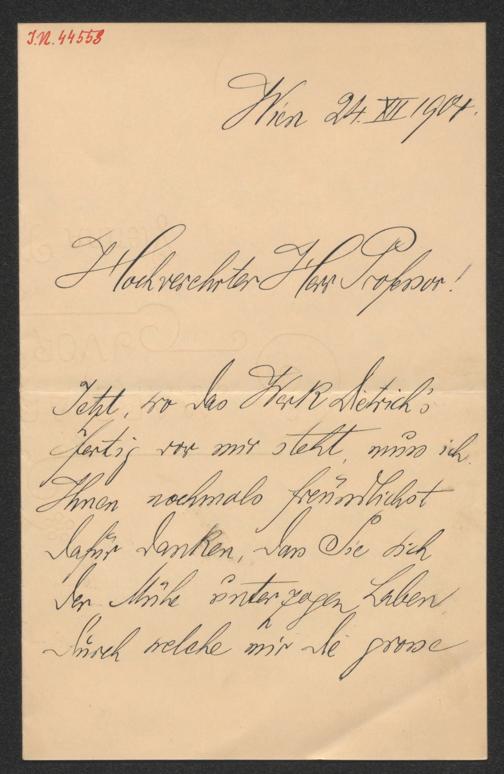 J.N. 44558
Wien 24. XII 1901.
Hochverehrter Herr Professor!
Jetzt, wo das Werk Dietrich's
fertig vor mir steht, muss ich
Ihnen nochmals freundlichst
dafür danken, dass Sie sich
der Mühe unterzogen haben
durch welche mir die grosse